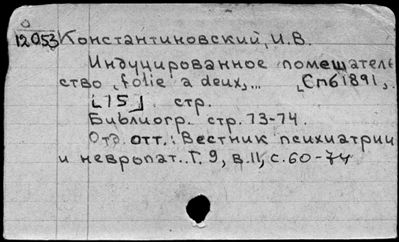 12053 Константиновский, И.В.
Индуцированное помешатель
ство "folie a deux"... [Спб 1891],
[15] стр.
Библиогр. стр. 73-74.
Отд. отт.: Вестник психиатрии
и невропат. Т. 9, в. II, с. 60-74